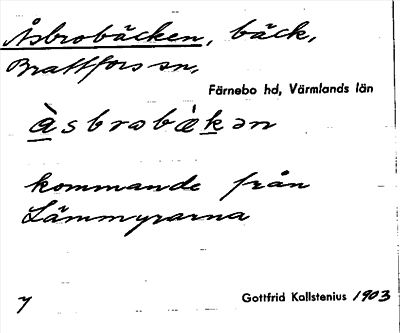 Åsbrobäcken, bäck,
Brattfors sn,
Färnebo hd, Värmlands län
àsbrobäkən
kommande från
Lämmyrarna
Gottfrid Kallstenius 1903